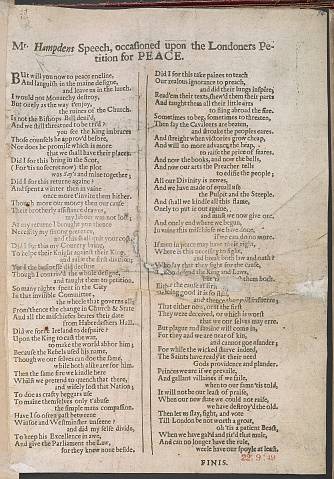 Mr. Hampdens Speech, occasioned upon the Londoners Pe-
tition for PEACE.
BUt will you now to peace encline,
And languish in the maine designe,
and leave us in the lurch.
I would not Monarchy destroy,
But onely as the way t'enjoy,
the ruines of the Church.
Is not the Bishops Bill deni'd
And we still threatned to be tri'd
you see the King imbraces
Those counsels he approv'd before,
Nor does he promise which is more
that we shall have their places.
Did I for this bring in the Scot,
( For 'tis no secret now) the plot
was Say's and mine together;
Did I for this returne againe
And spent a winter then in vaine
once more t'invite them hither.
Though more our money then our cause
Their brotherly assistance drawes,
labour was not lost;
At my returne I brought you thence
Necessity my strong pretence,
and this shall quit your cost.
Did I for this my Country bring,
To helpe their knight against their King,
and raise the first
though the businesse
Though I contriv'd the whole designe,
and taught them to petition.
So many nights spent in the City
In that invisible Committee,
the wheele that governs all;
From thence the change in Church & State
And all the mischiefes beares their date
from Haberdashers Hall.
Did we force Ireland to despaire
Upon the King to cast the war,
to make the world abhor him:
Because the Rebels used his name,
Though we our selves can doe the same,
while both alike are for him.
Then the same fire we kindle here
Whil'st we pretend to quench that there,
and wisely lost that Nation;
To doe as crafty beggars use
To maime themselves only t'abuse
the simple mans compassion.
Have I so often past betweene
Winsor and Westminster unseene
and did my selfe divide,
To keep his Excellence in awe,
And give the Parliament the Law,
for they knew none beside.
Did I for this take paines to teach
Our zealous ignorance to preach,
and did their lungs inspire;
Read'em their texts, shew'd them their parts
And taught them all their little arts
to fling abroad the fire.
Sometimes to beg, sometimes to threaten,
Then say the Cavaliers are beaten,
and stroake the peoples eares.
And streight when victories grow cheap,
And will no more advance the heap,
to raise the price of feares.
And now the books, and now the bells,
And now our arts the Preacher tells
to edifie the people;
All our Divinity is newes,
And we have made of equall use
the Pulpit and the Steeple.
And shall we kindle all this flame,
Onely to put it out againe,
and must we now give ore,
And onely end where we begun,
In vaine this mischiefe we have done,
if we can do no more.
If men in peace may have their right,
Where is this necessity to fight,
and break both law and oath
they fight for the cause,
defend the King and Laws,
them both.
Either the cause at first
Being good it is for
and thence they
That either now, or at the first
They were deceived, or which is worst
that we our selves may erre.
But plague and famine will come in,
For they and we are neare of kin,
and cannot goe asunder;
For while the wicked starve indeed,
The Saints have ready at their need
Gods providence and plunder.
Princes we are if we prevaile,
And gallant villaines if we faile,
when to our fame 'tis told,
It will not be our least of praise,
When our new state we could not raise,
we have destroy'd the old.
Then let us stay, fight, and vote
Till London be not worth a groat,
oh 'tis a patient Beast,
When we have gal'd and tir'd that mule,
And can no longer have the rule,
weele have our spoyle at least.
FINIS.